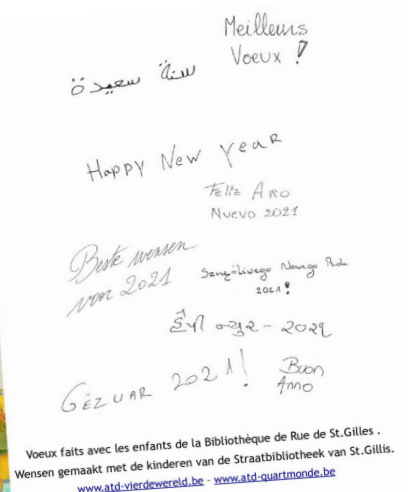 Meilleurs
Voeux !
سنة سعيدة
Happy New Year
Feliz Año
Nuevo 2021
Beste wensen
voor 2021
Nowego
2021!
હેપી ન્યુર - ૨૦૨૧
GËZUAR 2021!
Buon
Anno
Voeux faits avec les enfants de la Bibliothèque de Rue de St.Gilles .
Wensen gemaakt met de kinderen van de Straatbibliotheek van St.Gillis.
www.atd-vierdewereld.be - www.atd-quartmonde.be